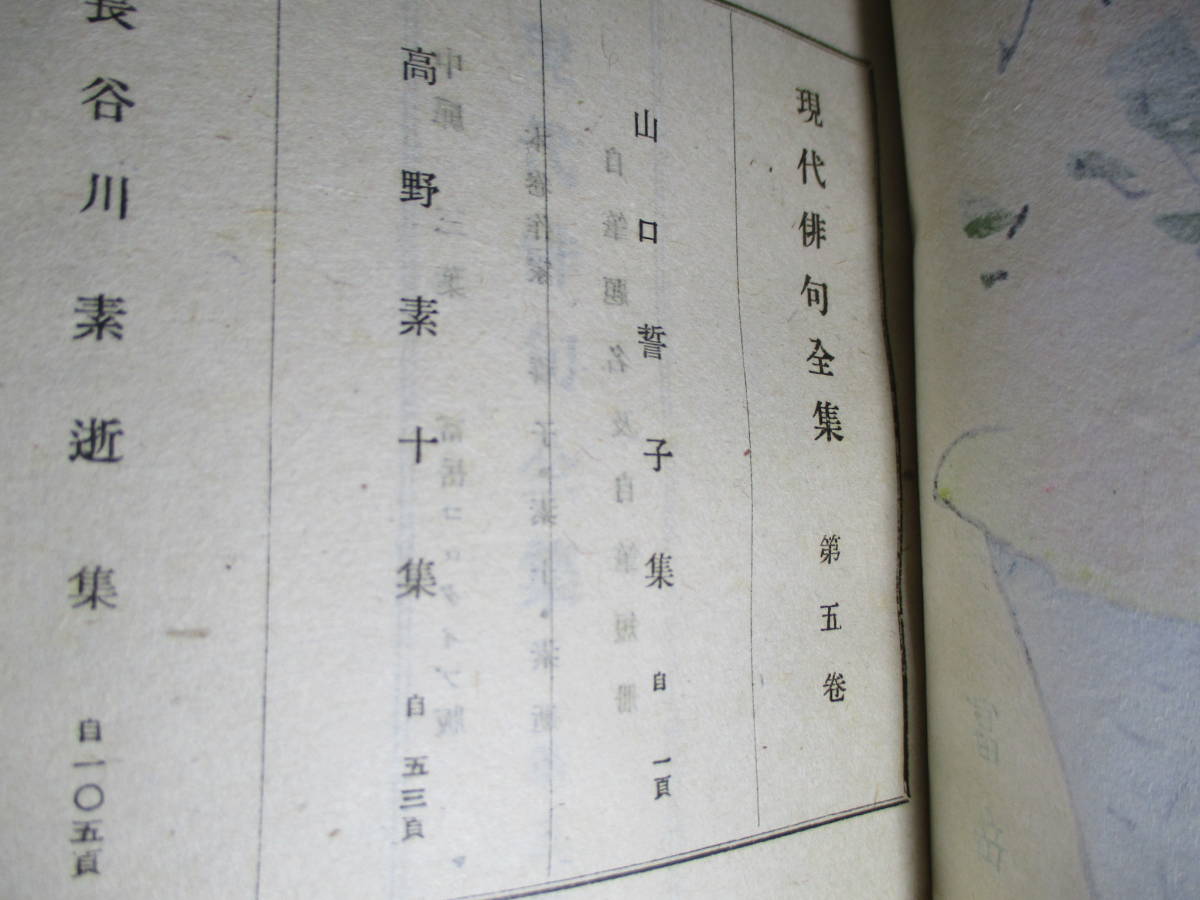 現代俳句全集 第五卷
山口誓子集 自一頁
高野素十集 自五三頁
長谷川素逝集 自一〇五頁